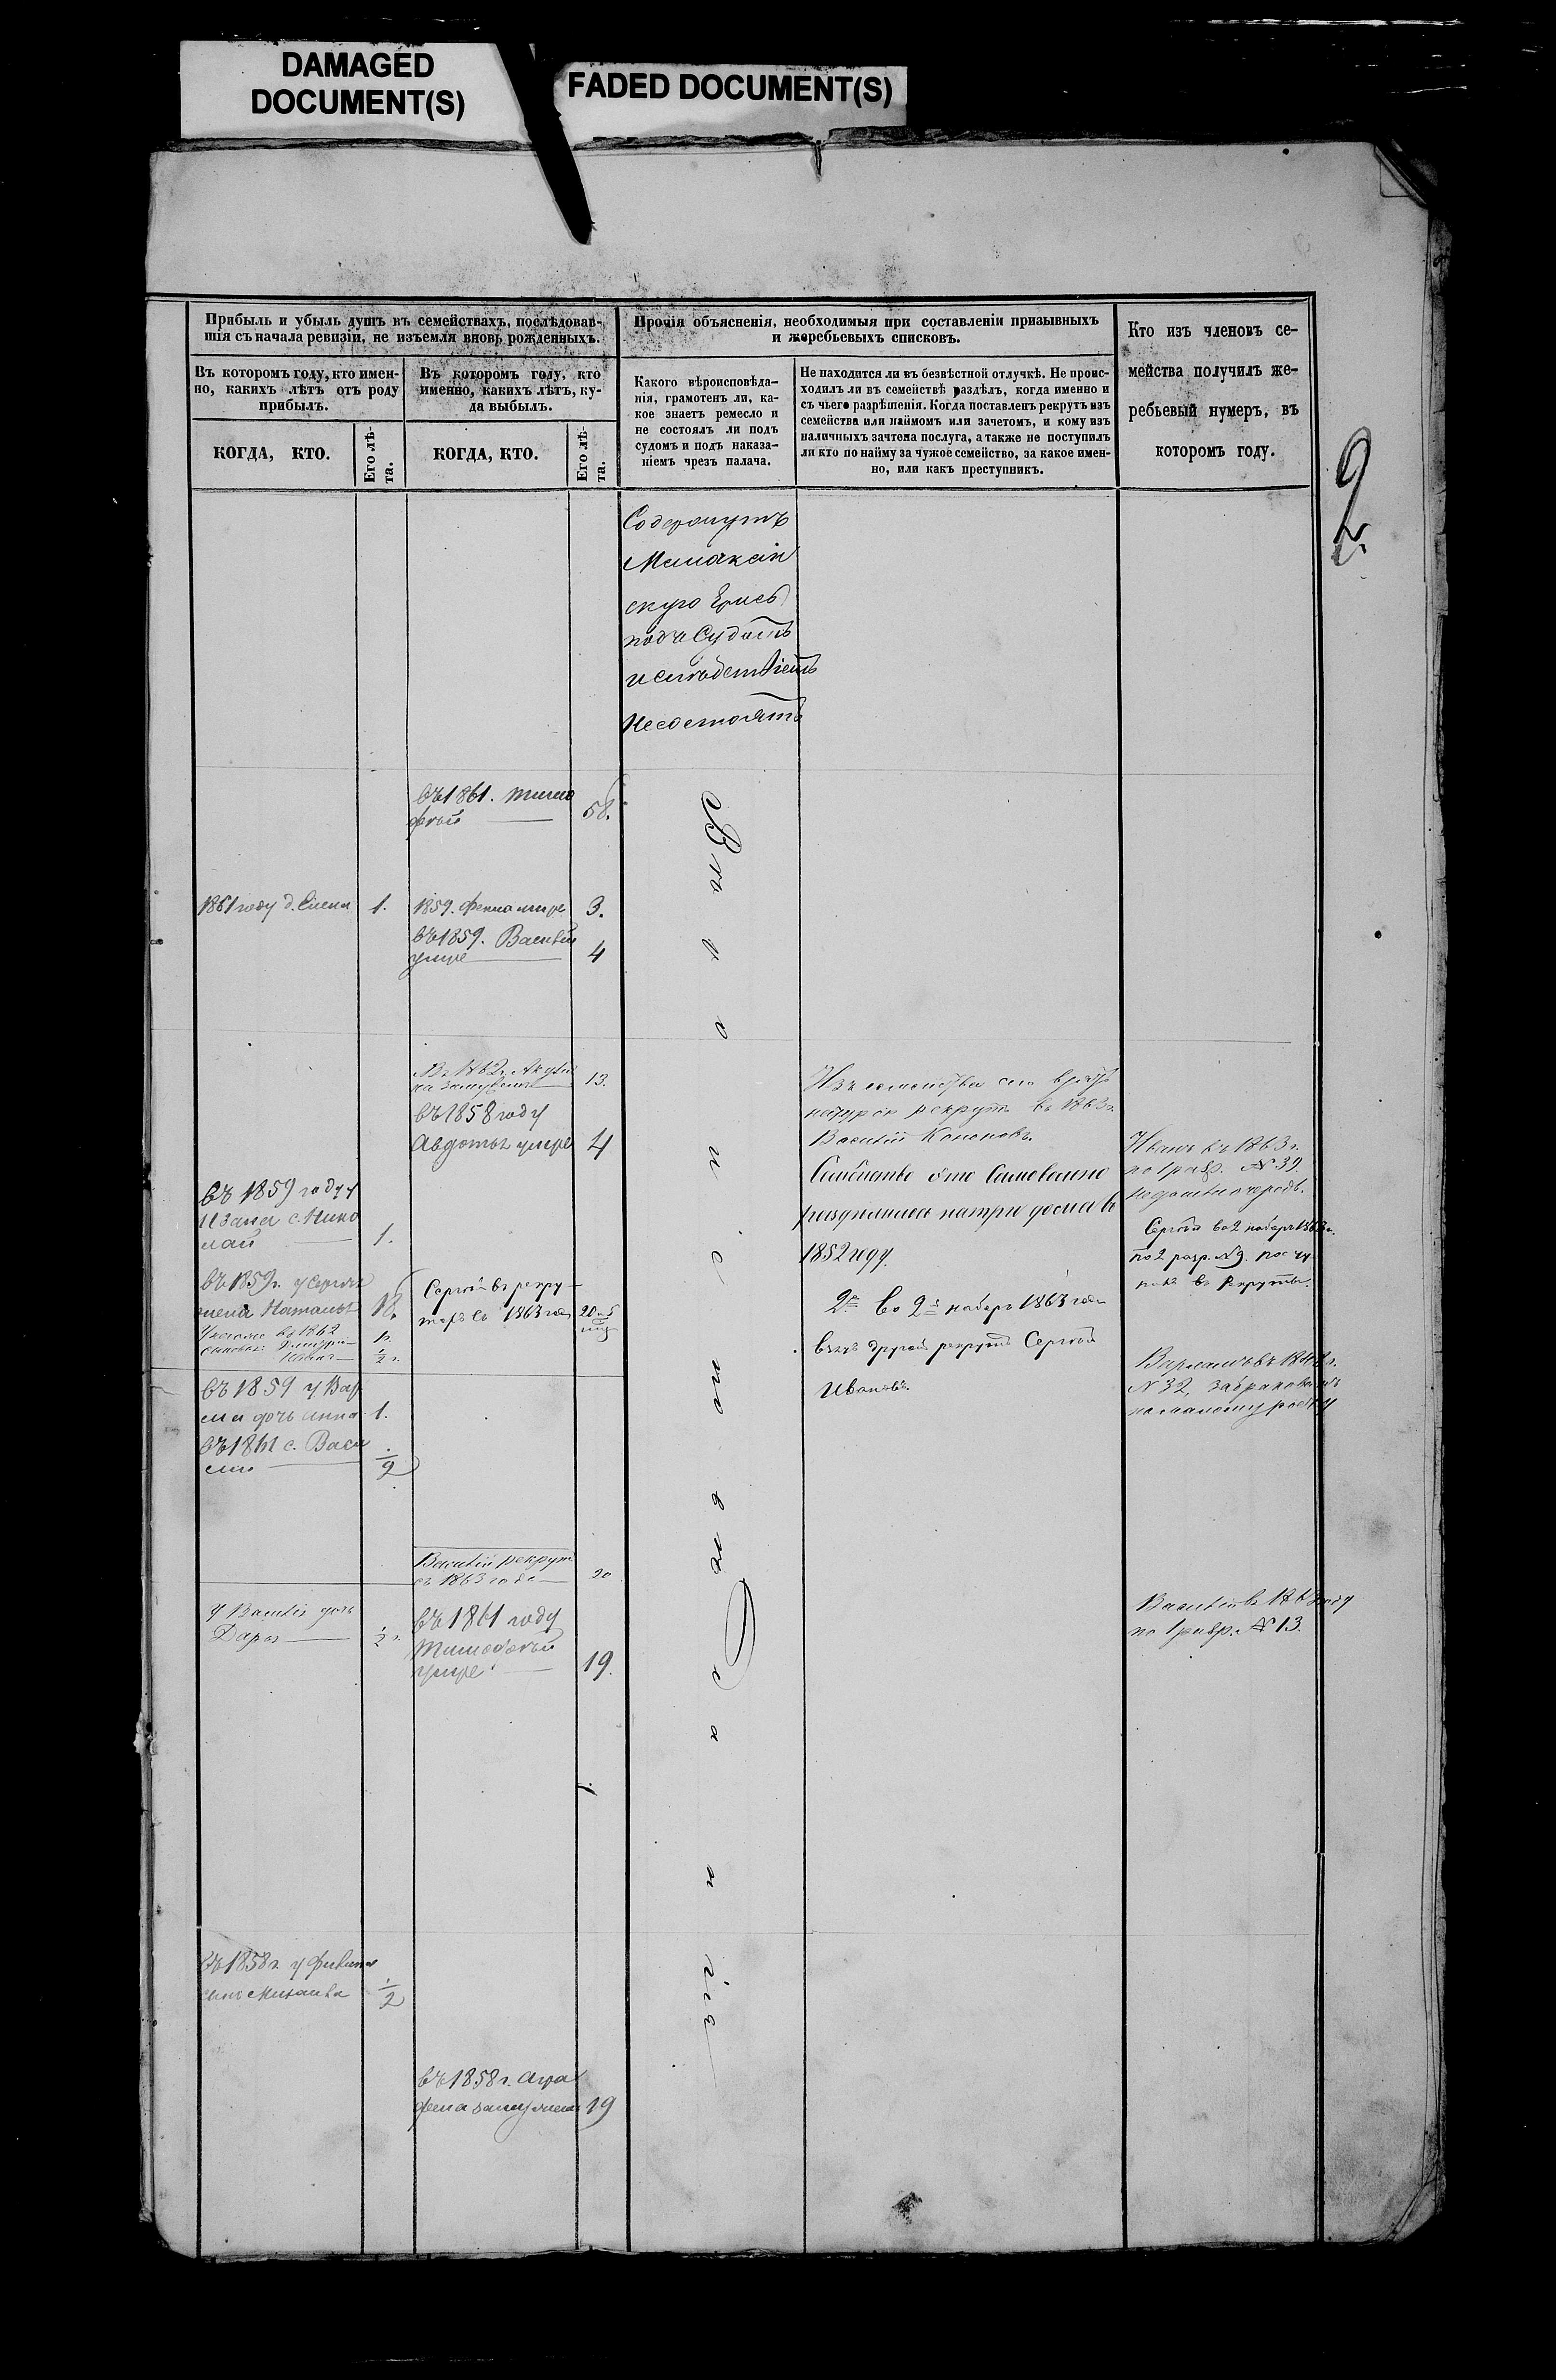 DAMAGED
DOCUMENT(S)
FADED DOCUMENT(S)
Прибыль и убыль душъ въ семействахъ, послѣдовав-
шія съ начала ревизіи, не изъемля вновь рожденныхъ.
Въ которомъ году, кто имен-
но, какихъ лѣтъ отъ роду
прибылъ.
КОГДА, КТО.
Его лѣ-
та.
Въ которомъ году, кто
именно, какихъ лѣтъ, ку-
да выбылъ.
КОГДА, КТО.
Его лѣ-
та.
Прочія объясненія, необходимыя при составленіи призывныхъ
и жеребьевыхъ списковъ.
Какого вѣроисповѣда-
нія, грамотенъ ли, ка-
кое знаетъ ремесло и
не состоялъ ли подъ
судомъ и подъ наказа-
ніемъ чрезъ палача.
Не находится ли въ безвѣстной отлучкѣ. Не проис-
ходилъ ли въ семействѣ раздѣлъ, когда именно и
съ чьего разрѣшенія. Когда поставленъ рекрутъ изъ
семейства или наймомъ или зачетомъ, и кому изъ
наличныхъ зачтена послуга, а также не поступилъ
ли кто по найму за чужое семейство, за какое имен-
но, или какъ преступникъ.
Кто изъ членовъ се-
мейства получилъ же-
ребьевый нумеръ, въ
которомъ году.
2
Содержутъ
скую Ересь
подъ Судомъ
и слѣдствіемъ
Несостоятъ
въ 1861. Тимо
фѣй 58.
1861 году д. 1.
1859. умре 3.
въ 1859. Василій
умре 4
Въ 1862 г. Акули
на замужемъ 13.
въ 1858 году
Авдотья умре 4
въ 1859 году у
Ивана с. Нико
лай 1.
въ 1859 г. у Сергѣя
жена Наталья 18.
въ 1862
Сергѣй въ рекру
тахъ съ 1863 года 20
въ 1859 у Вар
дочь Анна 1.
въ 1861 с. Васи
лій 1/2
Василій рекрут.
съ 1863 года 20
У Василія дочь
Дарья 1/2 г.
въ 1861 году
Тимофѣй
умре 19.
въ 1858 г. у
сынъ 1/2
въ 1858 г. Агра
фена замужемъ 19
Вѣроисповѣданіе
Изъ семейства сего взятъ
натурою рекрутъ въ 1863 г.
Василій Кононовъ.
Семейство это Самовольно
раздѣлилось на три дома въ
1852 году.
2е Во 2й наборъ 1863 года
взятъ другой рекрутъ Сергѣй
Ивановъ.
Иванъ въ 1863 г.
по 1 разр. № 39.
Сергѣй во 2 наборъ 1863 г.
по 2 разр. № 9. посту
въ рекруты.
№ 32, забракованъ
по малому росту
Василій въ 1863 году
по 1 разр. № 13.